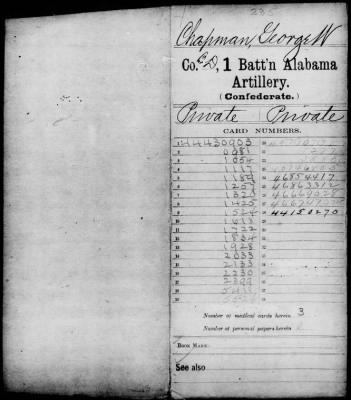 235
Chapman, George W
Co. C, D, 1 Batt'n Alabama
Artillery.
(Confederate.)
Private Private
CARD NUMBERS.
1 44430903
2 0981
3 1054
4 1117
5 1189 46854417
6 1257 46863312
7 1325 46669028
8 1425
9 1524 44150270
10 1618
11 1722
12 1834
13 1928
14 2033
15 2133
16 2230
17 2399
18
Number of medical cards herein 3
Number of personal papers herein
BOOK MARK:
See also